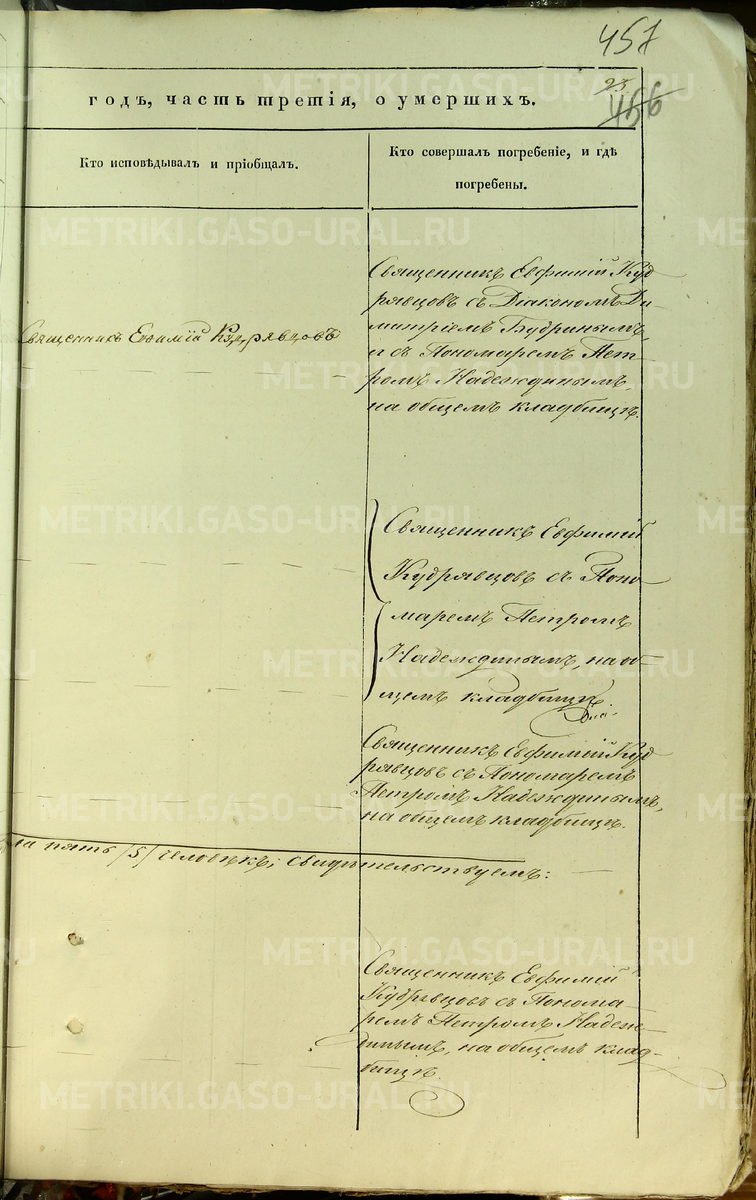 457
23
456
годъ, часть третія, о умершихъ.
Кто исповѣдывалъ и пріобщалъ.
Кто совершалъ погребеніе, и гдѣ
погребены.
Священникъ Евфимій Куд
рявцовъ съ Діакономъ Ди-
митріемъ Будринымъ,
и съ Пономаремъ Пет
ромъ Надеждинымъ,
на общемъ кладбищѣ.
Священникъ Евѳимій Кудрявцовъ
Священникъ Евфимій
Кудрявцовъ съ Поно-
маремъ Петромъ
Надеждинымъ, на об-
щемъ кладбищѣ.
Священникъ Евфимій Куд
рявцовъ съ Пономаремъ
Петромъ Надеждинымъ,
на общемъ кладбищѣ.
пять /5/ человѣкъ, свидѣтельствуемъ:
Священникъ Евфимій
Кудрявцовъ съ Понома-
ремъ Петромъ Надеж-
динымъ, на общемъ клад-
бищѣ.
METRIKI.GASO-URAL.RU